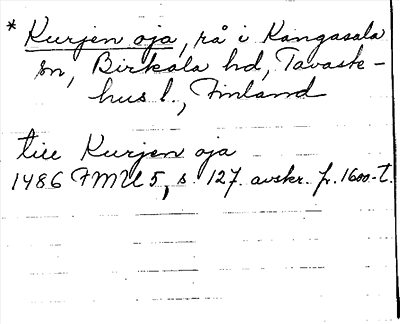 * Kurjen oja, rå i Kangasala
sn, Birkala hd, Tavaste-
hus l., Finland
till Kurjen oja
1486 FMU 5, s. 127. avskr. fr. 1600-t.